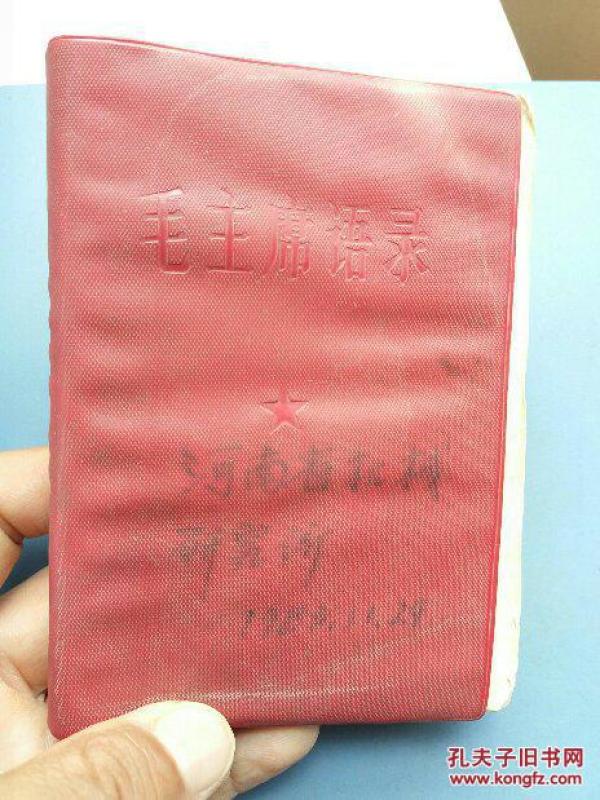 毛主席语录
河南省
研究所
11.29
孔夫子旧书网
www.kongfz.com